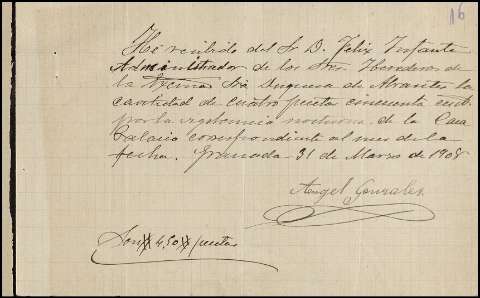 16
He recibido del Sr D. Felix Infante
Administrador de los Sres. Herederos de
la Excma Sra Duquesa de Abrantes la
cantidad de cuatro pesetas cincuenta cents
por la vigilancia nocturna de la Casa
Palacio correspondiente al mes de la
fecha. Granada 31 de Marzo de 1908
Angel Gonzales
Son 4,50 pesetas